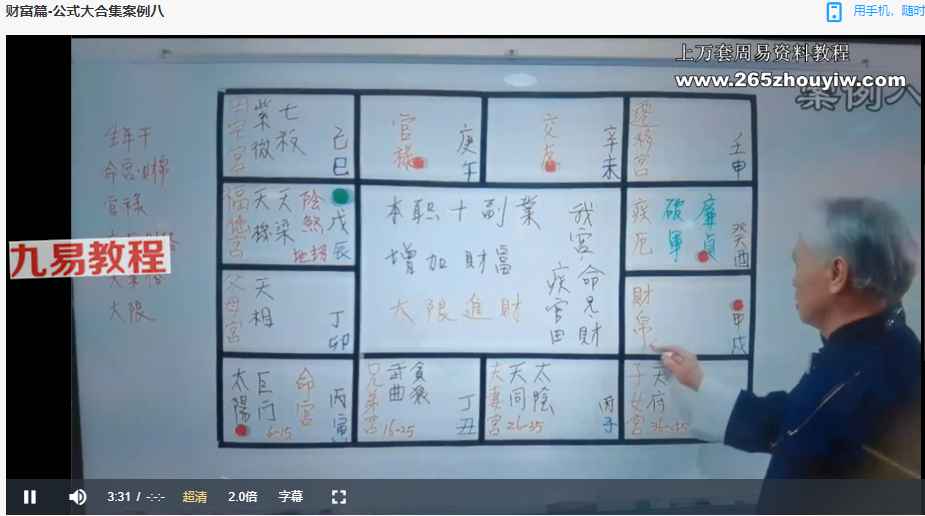 财富篇-公式大合集案例八
用手机，随时
上万套周易资料教程
www.265zhouyiw.com
案例八
生年干
官禄
大限
九易教程
田宅宫
紫微
七殺
己巳
官禄
庚午
交友
辛未
遷移宫
壬申
福德宫
天機
天梁
陰煞
地劫
戊辰
本职十副業
增加財富
大限進財
我宫
命兄財
疾官田
疾厄
破軍
廉貞
癸酉
父母宫
天相
丁卯
財帛
甲戌
太陽
巨门
命宫
6-15
丙寅
兄弟宫
武曲
貪狼
16-25
丁丑
夫妻宫
天同
太陰
26-35
丙子
子女宫
天府
36-45
3:31 / -:-:-
超清
2.0倍
字幕